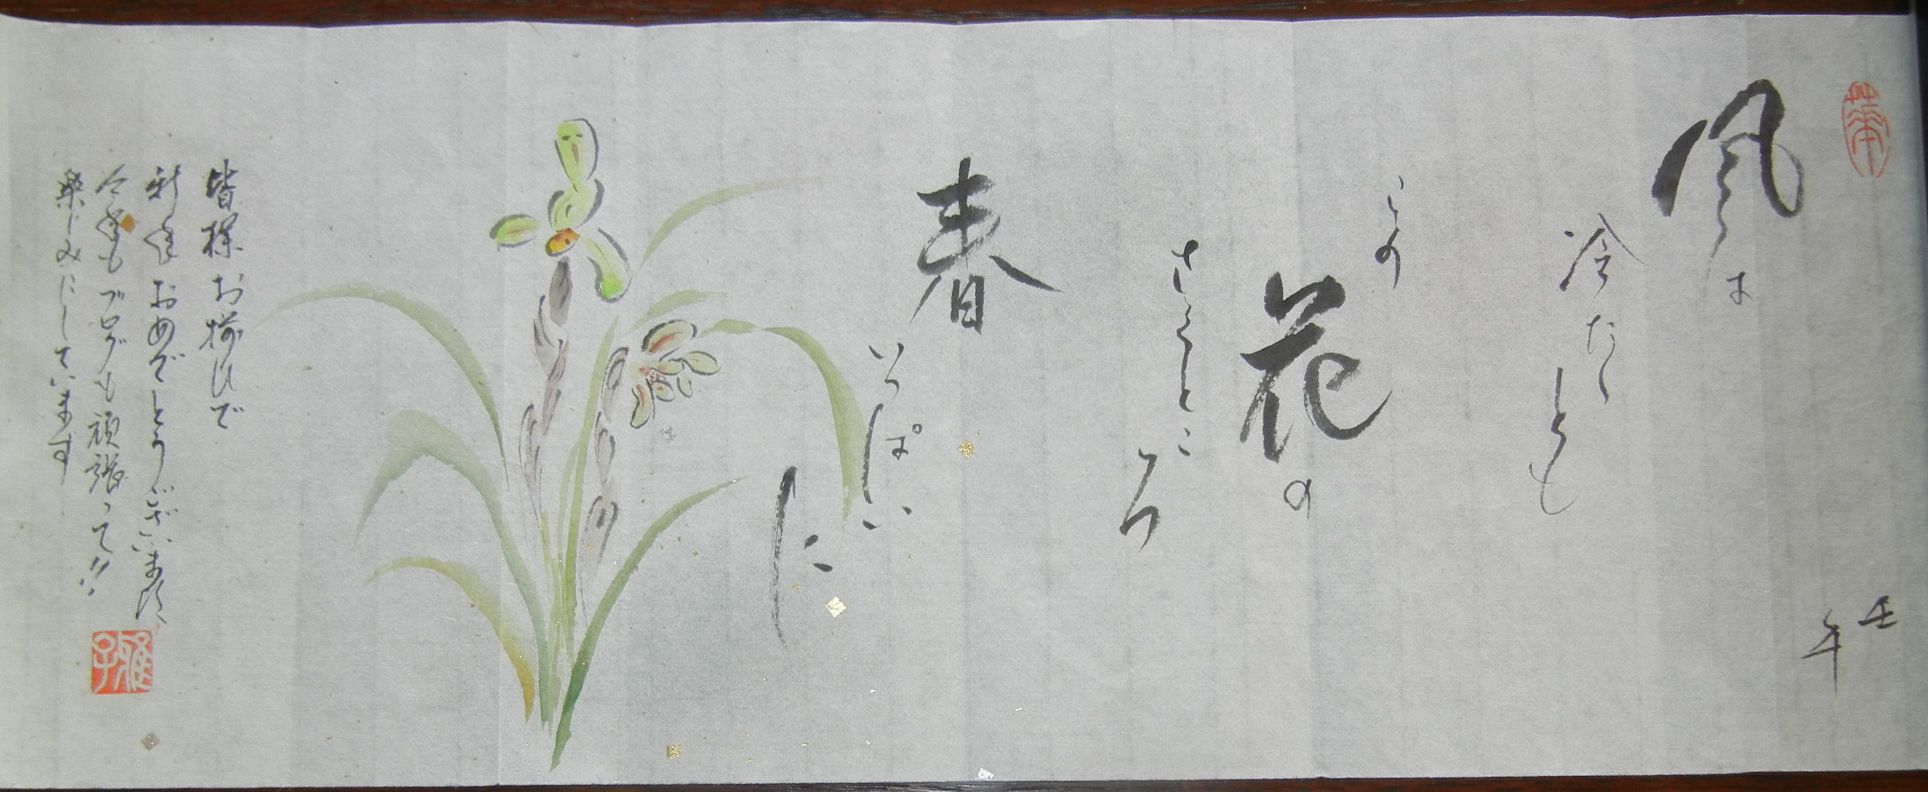 華
壬午
風は
冷たくとも
この
花の
さくところ
春
いっぱい
に
皆様お揃ひで
新年おめでとうございます
今年もブログも頑張って!!
楽しみにしています
雅子